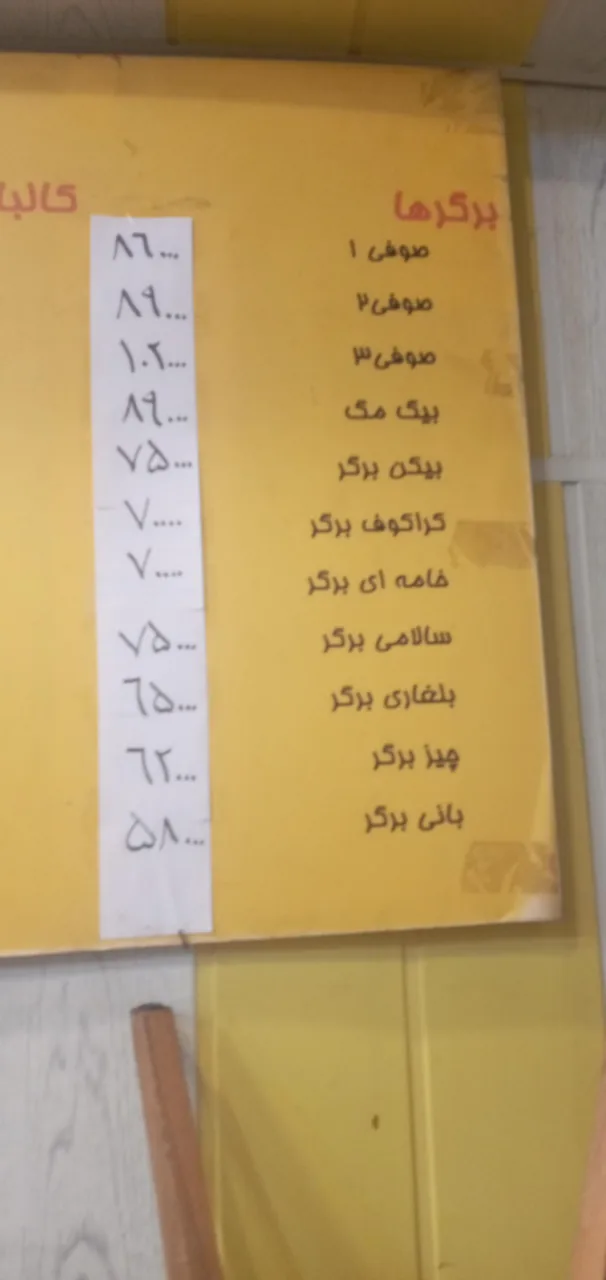 برگرها
صوفی ۱ ۸۶...
صوفی۲ ۸۹...
صوفی۳ ۱۰۲...
بیگ مگ ۸۹...
بیکن برگر ۷۵...
کراکوف برگر ۷....
خامه ای برگر ۷....
سالامی برگر ۷۵...
بلغاری برگر ۶۵...
چیز برگر ۶۲...
بانی برگر ۵۸...
کالبا